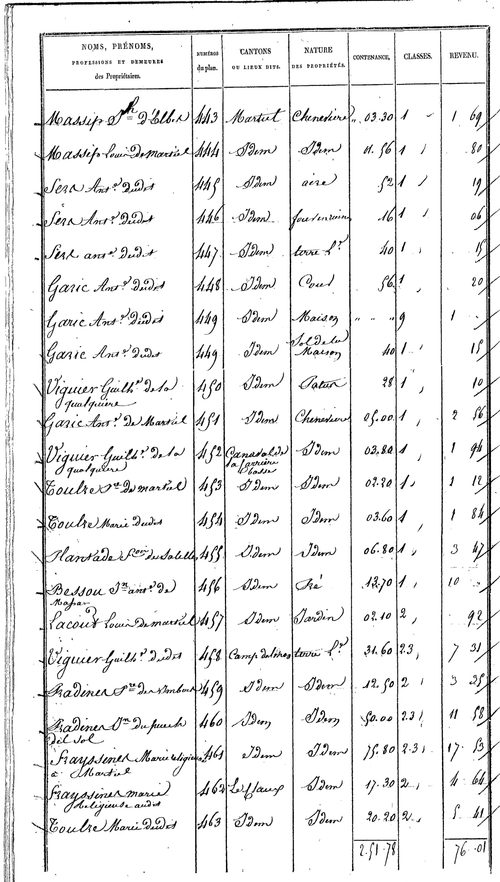 NOMS, PRÉNOMS, PROFESSIONS ET DEMEURES des Propriétaires. NUMÉROS du plan. CANTONS OU LIEUX DITS. NATURE DES PROPRIÉTÉS. CONTENANCE. CLASSES. REVENU.
Massip Jh d'Elbes 443 Martiel Cheneviere 03.30 1 1 69
Massip Louis de martiel 444 Idem Idem 01.56 1 80
Sera Ant.e dudit 445 Idem aire 52 1 19
Sera Ant.e dudit 446 Idem four en ruine 16 1 06
Sera ant.e dudit 447 Idem terre L.e 40 1 15
Garic Ant.e dudit 448 Idem Cour 56 1 20
Garic Ant.e dudit 449 Idem Maison " " " 9 1 "
Garic Ant.e dudit 449 Idem Sol de la Maison 40 1 15
Viguier Guilh.e de la qualquière 450 Idem Patus 28 1 10
Garic Ant.e de Martiel 451 Idem Cheneviere 05.00 1 2 56
Viguier Guilh.e de la qualquière 452 Idem 03.80 1 1 94
Toulze de martiel 453 Idem Idem 02.20 1 1 12
Toulze Marie dudit 454 Idem Idem 03.60 1 1 84
Plantade de Salelles 455 Idem Idem 06.80 1 3 47
Bessou ant.e de 456 Idem Pré 13.70 1 10
Lacout Louis de martiel 457 Idem Jardin 02.10 2 92
Viguier Guilh.e dudit 458 terre L.e 31.60 2.3 7 31
Radines 459 Idem Idem 12.50 2 3 25
Radines du puech del Sol 460 Idem Idem 50.00 2.3 11 58
Frayssines Marie religieuse à Martiel 461 Idem Idem 75.80 2.3 17 53
Frayssines marie Religieuse audit 462 Idem 17.30 2 4 64
Toulze Marie dudit 463 Idem Idem 20.20 2 5 41
2.51.78 76.01